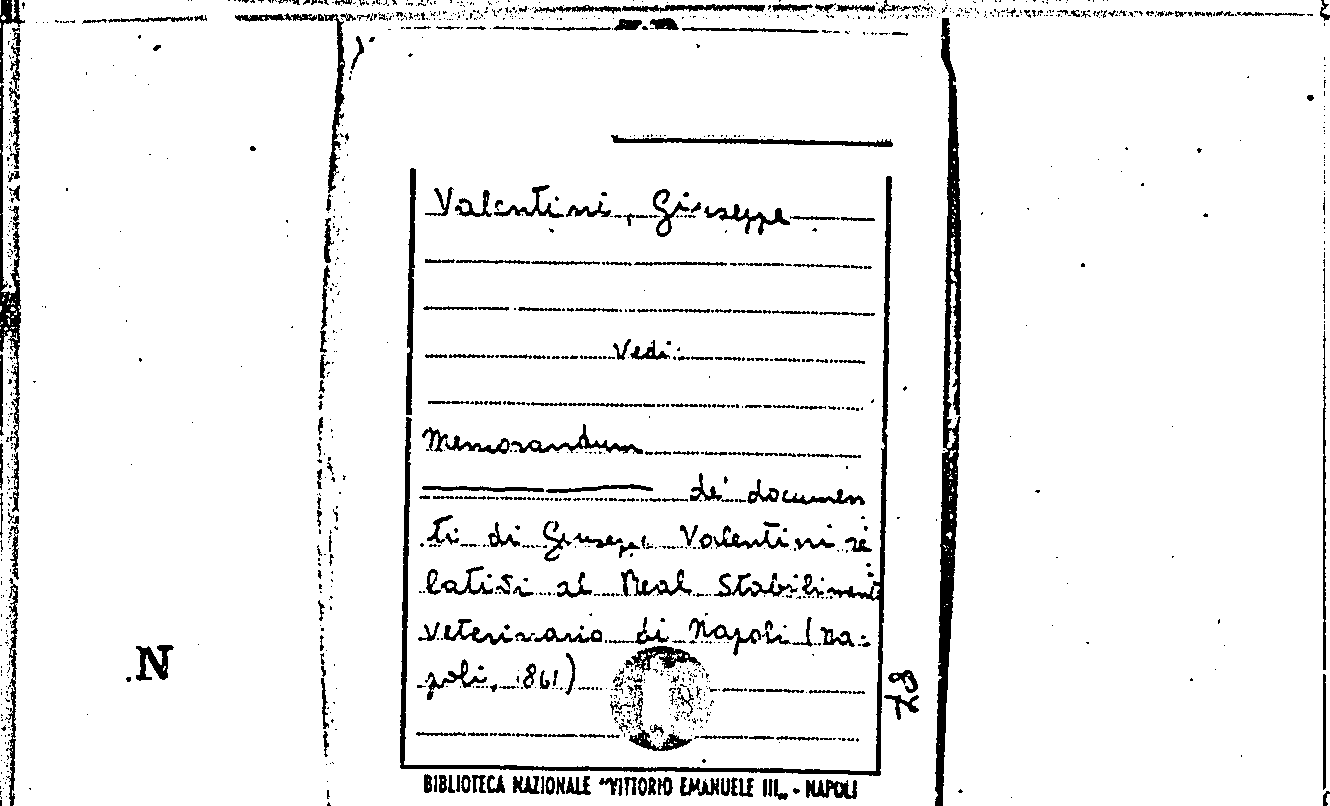 Valentini, Giuseppe
Vedi:
Memorandum
de' documen
ti di Giuseppe Valentini re
lativi al Real Stabilimento
veterinario di Napoli (Na-
poli, 1861)
BIBLIOTECA NAZIONALE "VITTORIO EMANUELE III" - NAPOLI
N
78